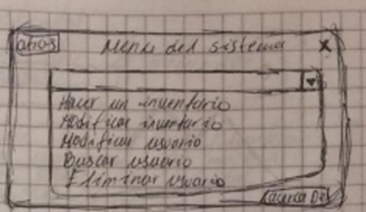 atras Menu del sistema X
Hacer un inventario
Modificar inventario
Modificar usuario
Buscar usuario
Eliminar usuario
Acerca De